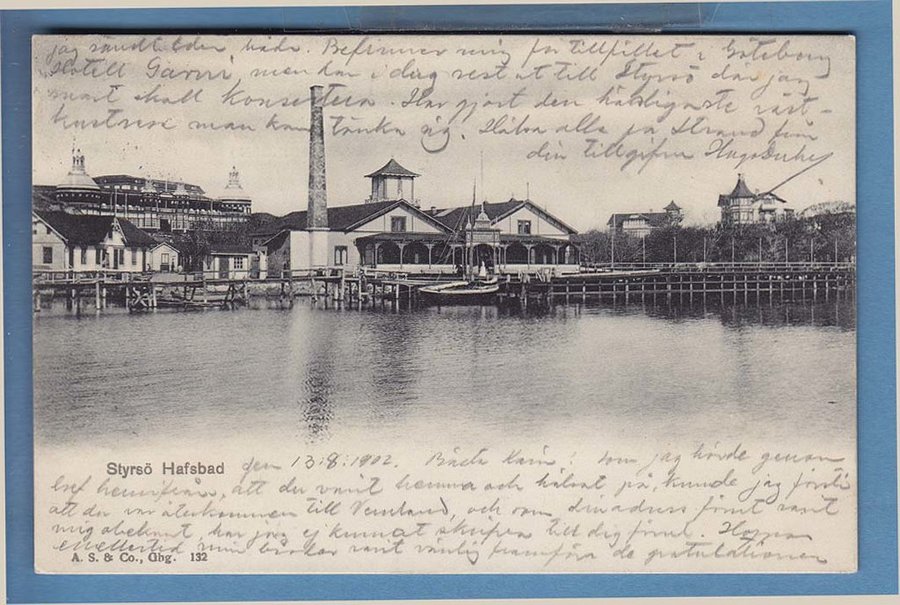 jag sändt eder både. Befinner mig för tillfället i Göteborg
Hotell Garni, men har i dag rest ut till Styrsö där jag
skall konsertera. Har gjort den
man kan tänka sig. Hälsa alla på Strand från
din tillgifvne Hugo
Styrsö Hafsbad
den 13:8:1902. Bästa Karin! Som jag hörde genom
bref hemifrån, att du varit hemma och hälsat på, kunde jag förstå
att du var återkommen till Vermland, och som din adress förut varit
mig obekant har jag ej kunnat skrifva till dig förut. Hoppas
emellertid min bror varit vänlig framföra de gratulationer
A. S. & Co., Gbg. 132